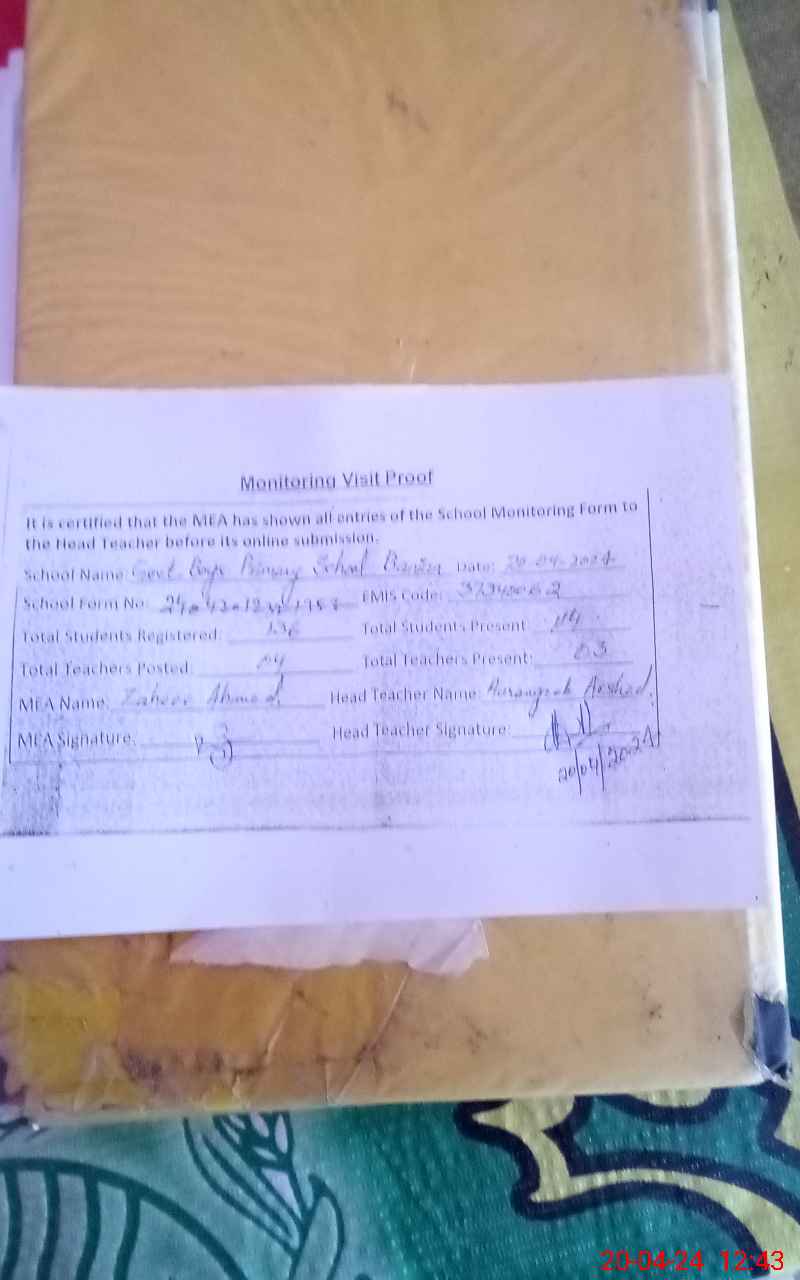 Monitoring Visit Proof
It is certified that the MEA has shown all entries of the School Monitoring Form to
the Head Teacher before its online submission.
School Name: Govt. Boys Primary School Date: 20-04-2024
School Form No: EMIS Code:
Total Students Registered: 136 Total Students Present: 114
Total Teachers Posted: 04 Total Teachers Present: 03
MEA Name: Zaheer Ahmed Head Teacher Name: Aurangzeb Arshad
MEA Signature: Head Teacher Signature:
20/04/2024
20-04-24 12:43